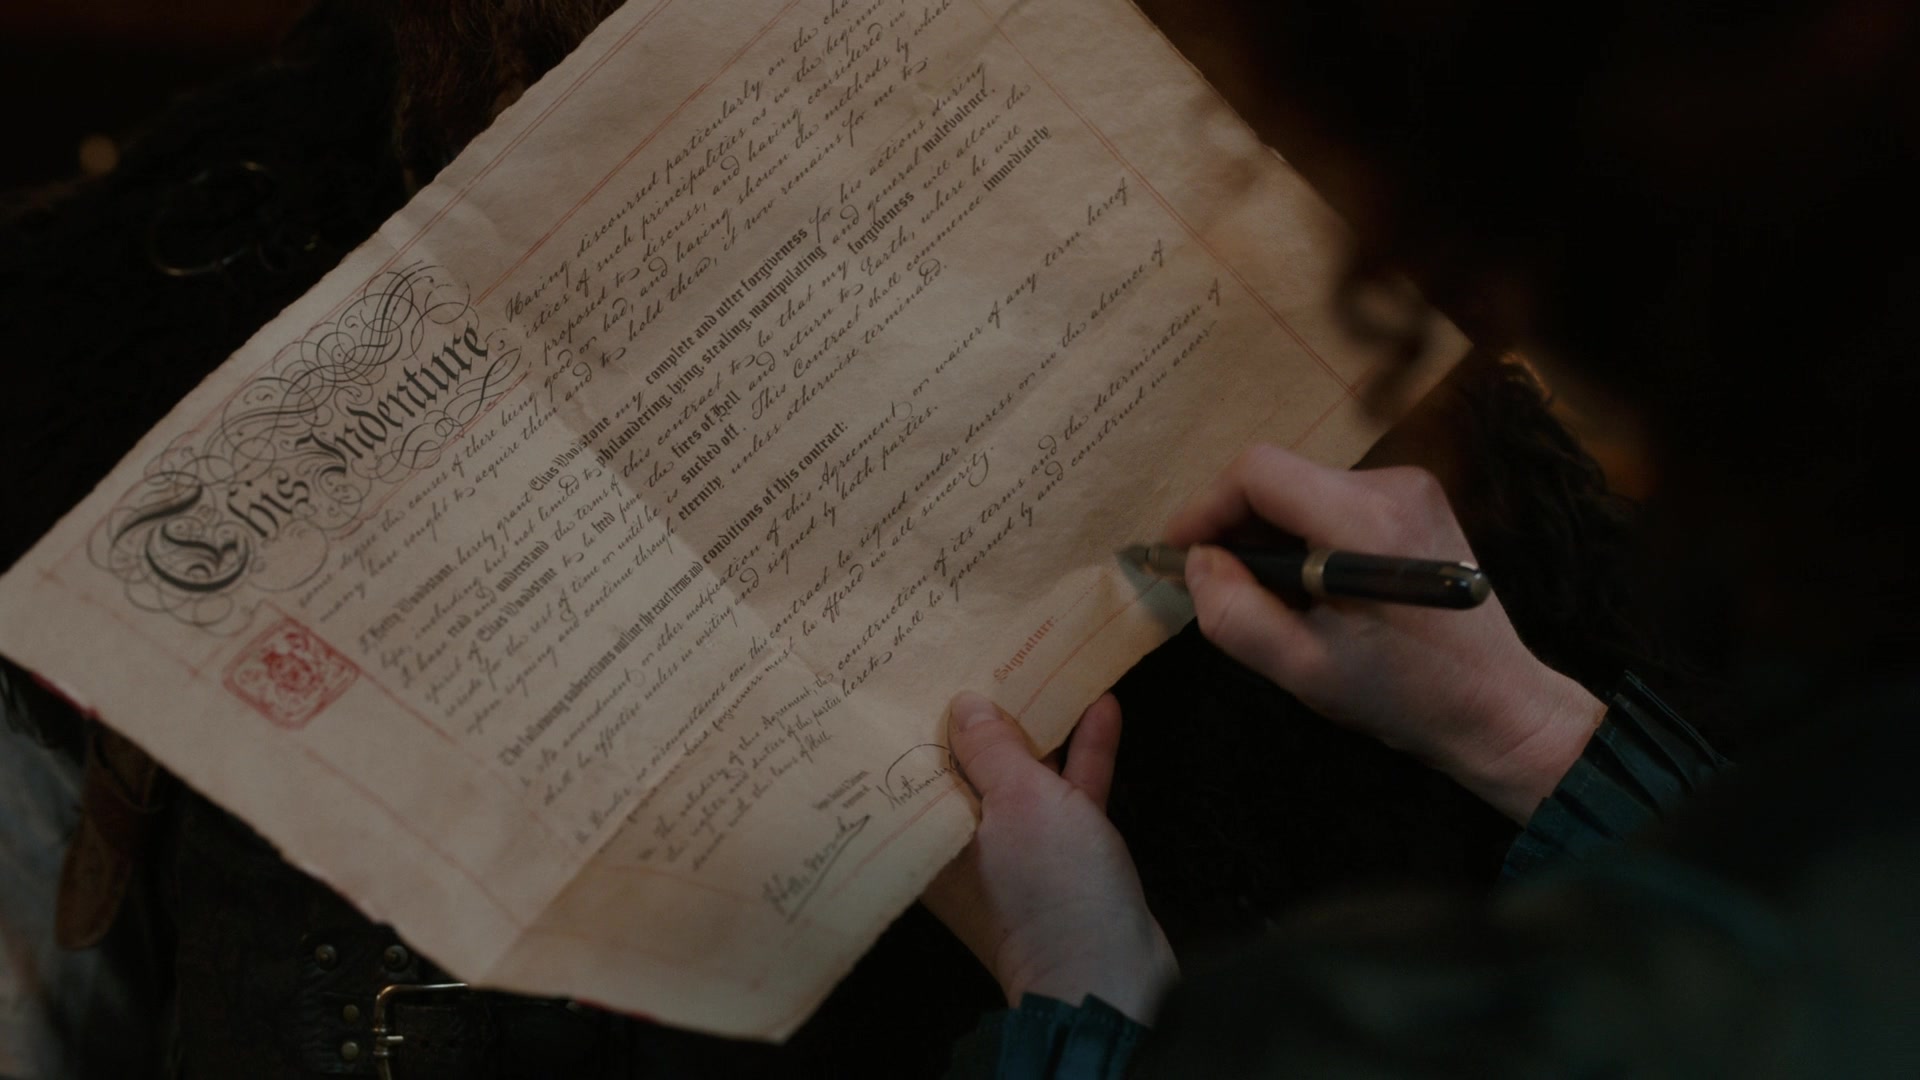 This Indenture
Having discoursed particularly on the cha
istics of such principalities as in the beginni
proposed to discuss, and having considered in
some degree the causes of there being good or bad, and having shown the methods by which
many have sought to acquire them and to hold them, it now remains for me to
I, Hetty Woodstone, hereby grant Elias Woodstone my complete and utter forgiveness for his actions during
life, including but not limited to philandering, lying, stealing, manipulating and general malevolence.
I have read and understand the terms of this contract to be that my forgiveness will allow the
spirit of Elias Woodstone to be freed from the fires of Hell and return to Earth, where he will
reside for the rest of time or until he is sucked off. This Contract shall commence immediately
upon signing and continue through eternity unless otherwise terminated.
The following subsections outline the exact terms and conditions of this contract:
No amendment or other modification of this Agreement or waiver of any term hereof
shall be effective unless in writing and signed by both parties.
Under no circumstances can this contract be signed under duress or in the absence of
forgiveness must be offered in all sincerity.
The validity of this Agreement, the construction of its terms and the determination of
the rights and duties of the parties hereto shall be governed by and construed in accor-
dance with the laws of Hell.
Signature: